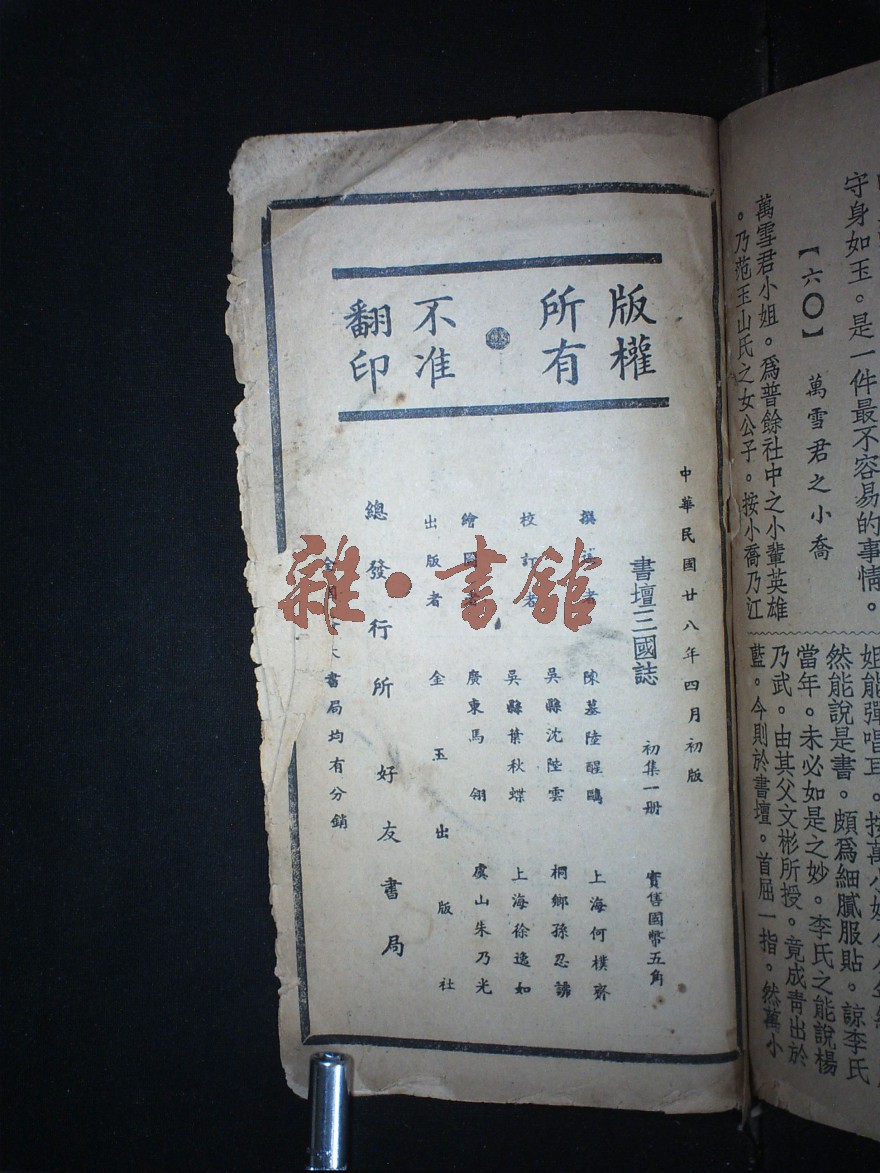 版權所有
不准翻印
中華民國廿八年四月初版
書壇三國誌 初集一册 實售國幣五角
撰述者 陳墓陸醒鷗 上海何樸齊
校訂者 吳縣沈陛雲 桐鄉孫忍諑
吳縣葉秋蝶 上海徐逸如
繪圖者 廣東馬翎 虞山朱乃光
出版者 金玉出版社
總發行所 好友書局
全國 大書局均有分銷
雜·書館
守身如玉。是一件最不容易的事情。
【六〇】 萬雪君之小喬
萬雪君小姐。爲普餘社中之小輩英雄
。乃范玉山氏之女公子。按小喬乃江
姐能彈唱耳。按萬小姐
然能說是書。頗爲細膩服貼。諒李氏
當年。未必如是之妙。李氏之能說楊
乃武。由其父文彬所授。竟成靑出於
藍。今則於書壇。首屈一指。然萬小